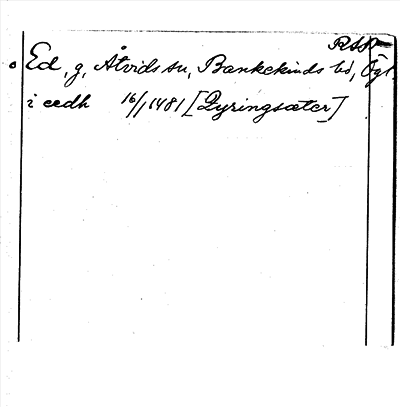 RSP
Ed, g, Åtvids sn, Bankekinds hd, Ögl.
i eedh 16/1 1481 [Dyringsæter]